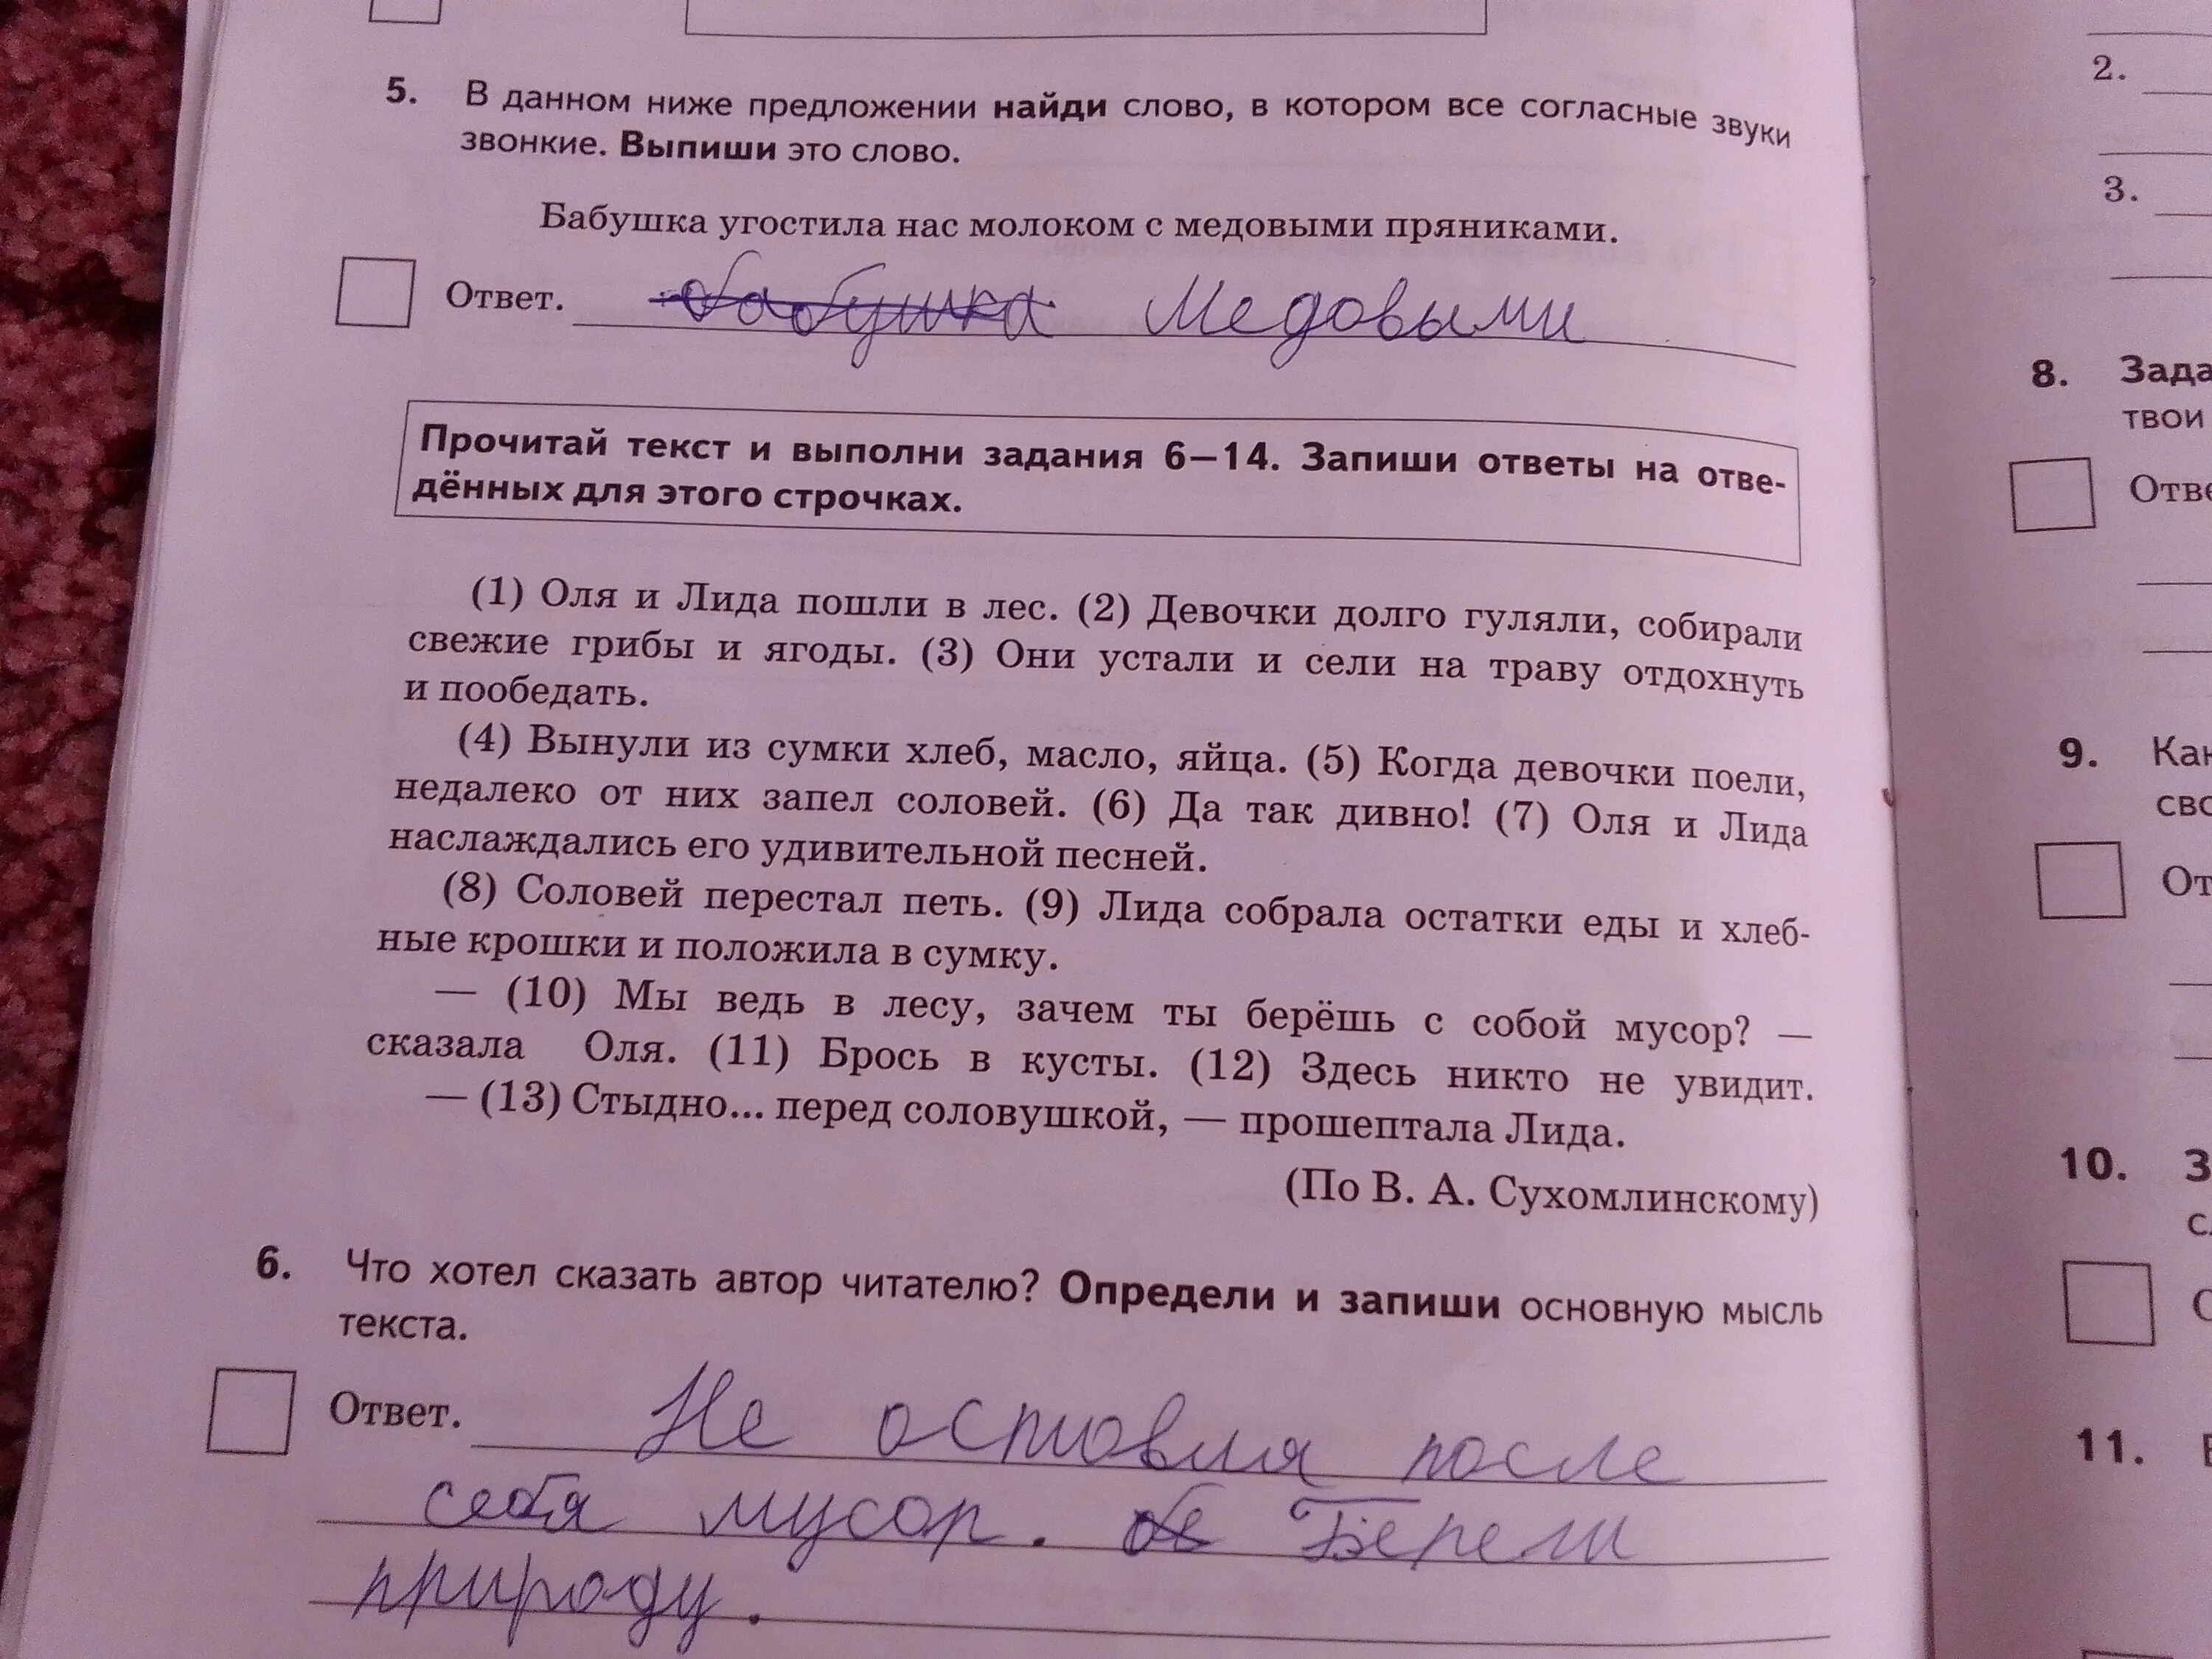 5. В данном ниже предложении найди слово, в котором все согласные звуки
звонкие. Выпиши это слово.
Бабушка угостила нас молоком с медовыми пряниками.
Ответ. бабушка Медовыми
Прочитай текст и выполни задания 6—14. Запиши ответы на отве-
дённых для этого строчках.
(1) Оля и Лида пошли в лес. (2) Девочки долго гуляли, собирали
свежие грибы и ягоды. (3) Они устали и сели на траву отдохнуть
и пообедать.
(4) Вынули из сумки хлеб, масло, яйца. (5) Когда девочки поели,
недалеко от них запел соловей. (6) Да так дивно! (7) Оля и Лида
наслаждались его удивительной песней.
(8) Соловей перестал петь. (9) Лида собрала остатки еды и хлеб-
ные крошки и положила в сумку.
— (10) Мы ведь в лесу, зачем ты берёшь с собой мусор? —
сказала Оля. (11) Брось в кусты. (12) Здесь никто не увидит.
— (13) Стыдно... перед соловушкой, — прошептала Лида.
(По В. А. Сухомлинскому)
6. Что хотел сказать автор читателю? Определи и запиши основную мысль
текста.
Ответ. Не остовля после
себя мусор. бе Береги
природу.
2.
3.
8. Зада
твои
Отве
9. Как
сво
От
10. З
сл
О
11. В